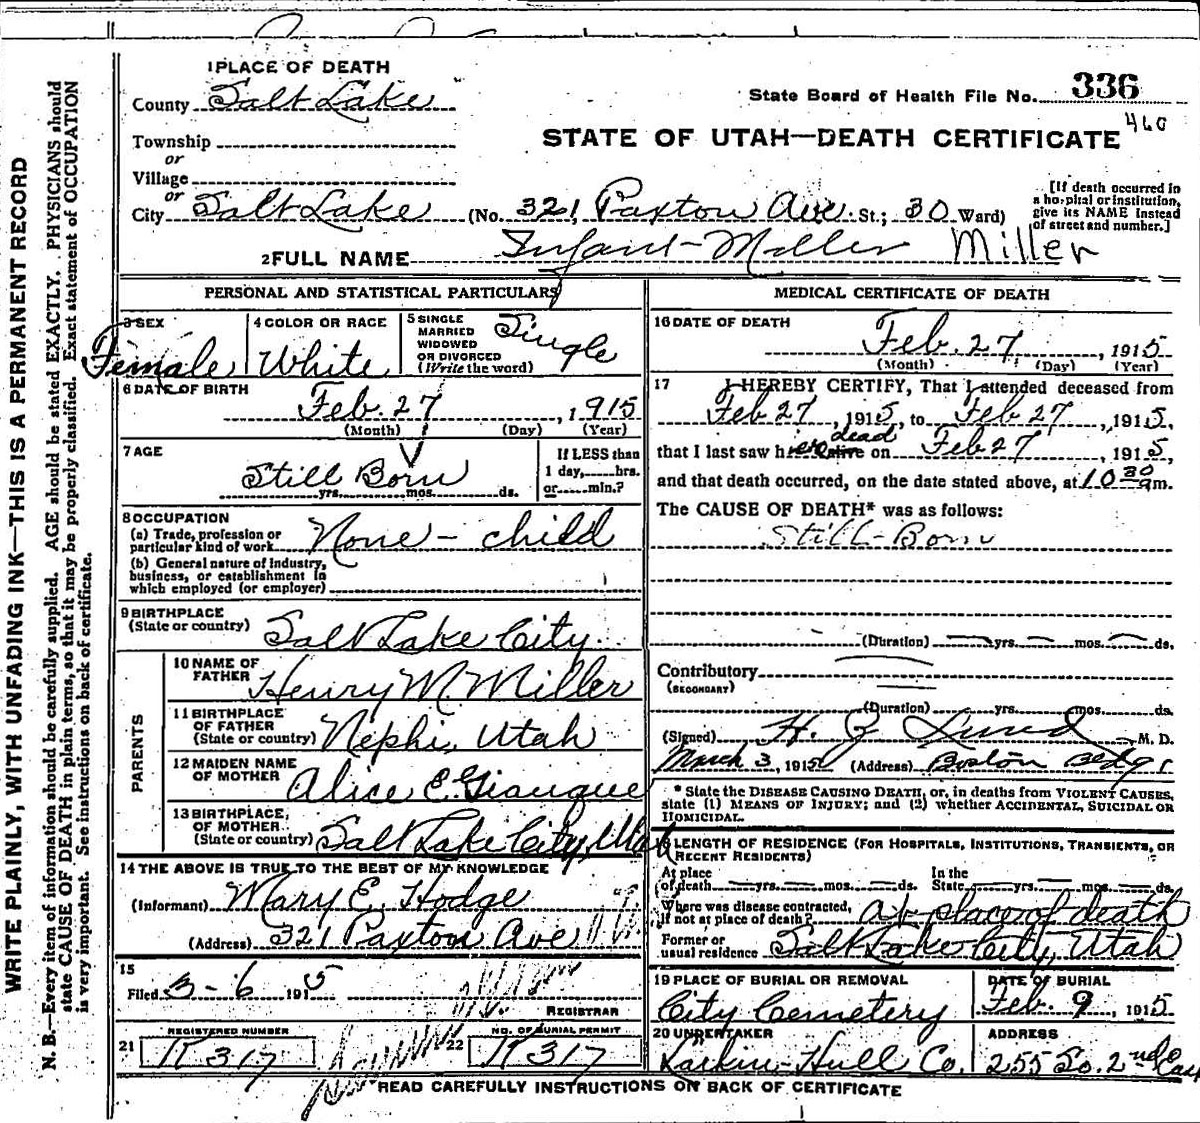 1 PLACE OF DEATH
County Salt Lake
State Board of Health File No. 336
460
Township
or
Village
or
STATE OF UTAH—DEATH CERTIFICATE
City Salt Lake (No. 321 Paxton Ave. St.; 30 Ward)
[If death occurred in
a hospital or institution,
give its NAME instead
of street and number.]
2 FULL NAME Infant Miller Miller
PERSONAL AND STATISTICAL PARTICULARS
3 SEX
Female
4 COLOR OR RACE
White
5 SINGLE
MARRIED
WIDOWED
OR DIVORCED
(Write the word)
Single
6 DATE OF BIRTH
Feb. 27, 1915
(Month) (Day) (Year)
7 AGE
Still Born
yrs. mos. ds.
If LESS than
1 day, hrs.
or min.?
8 OCCUPATION
(a) Trade, profession or
particular kind of work None - child
(b) General nature of Industry,
business, or establishment in
which employed (or employer)
9 BIRTHPLACE
(State or country) Salt Lake City.
PARENTS
10 NAME OF
FATHER Henry M. Miller
11 BIRTHPLACE
OF FATHER
(State or country) Nephi, Utah
12 MAIDEN NAME
OF MOTHER Alice E. Giauque
13 BIRTHPLACE
OF MOTHER
(State or country) Salt Lake City, Utah
14 THE ABOVE IS TRUE TO THE BEST OF MY KNOWLEDGE
(Informant) Mary E. Hodge
(Address) 321 Paxton Ave
15
Filed 3-6 1915
REGISTRAR
REGISTERED NUMBER
21 K317
NO. OF BURIAL PERMIT
22 K317
MEDICAL CERTIFICATE OF DEATH
16 DATE OF DEATH
Feb. 27, 1915
(Month) (Day) (Year)
17 I HEREBY CERTIFY, That I attended deceased from
Feb 27, 1915, to Feb 27, 1915,
that I last saw her alive dead on Feb 27, 1915,
and that death occurred, on the date stated above, at 10 30 am.
The CAUSE OF DEATH* was as follows:
Still-Born
(Duration) yrs. mos. ds.
Contributory
(SECONDARY)
(Duration) yrs. mos. ds.
(Signed) H. Z. Lund M. D.
March 3, 1915 (Address) Boston Bldg.
* State the DISEASE CAUSING DEATH, or, in deaths from VIOLENT CAUSES,
state (1) MEANS OF INJURY; and (2) whether ACCIDENTAL, SUICIDAL OR
HOMICIDAL.
LENGTH OF RESIDENCE (FOR HOSPITALS, INSTITUTIONS, TRANSIENTS, OR
RECENT RESIDENTS)
At place
of death yrs. mos. ds.
In the
State yrs. mos. ds.
Where was disease contracted,
if not at place of death? at place of death
Former or
usual residence Salt Lake City, Utah
19 PLACE OF BURIAL OR REMOVAL
City Cemetery
DATE OF BURIAL
Feb. 9, 1915
20 UNDERTAKER
Larkin-Hull Co.
ADDRESS
255 So. 2nd East
READ CAREFULLY INSTRUCTIONS ON BACK OF CERTIFICATE
WRITE PLAINLY, WITH UNFADING INK—THIS IS A PERMANENT RECORD
N. B.—Every item of information should be carefully supplied. AGE should be stated EXACTLY. PHYSICIANS should
state CAUSE OF DEATH in plain terms, so that it may be properly classified. Exact statement of OCCUPATION
is very important. See instructions on back of certificate.